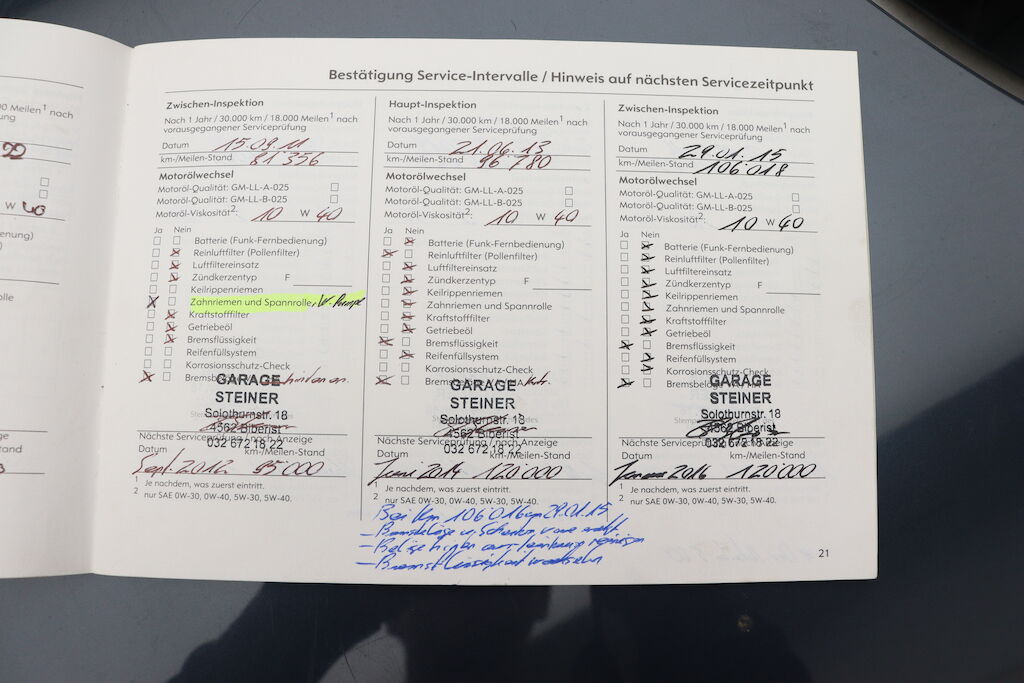 Bestätigung Service-Intervalle / Hinweis auf nächsten Servicezeitpunkt
Zwischen-Inspektion
Nach 1 Jahr / 30.000 km / 18.000 Meilen¹ nach
vorausgegangener Serviceprüfung
Datum 15.09.11
km-/Meilen-Stand 81'356
Motorölwechsel
Motoröl-Qualität: GM-LL-A-025
Motoröl-Qualität: GM-LL-B-025
Motoröl-Viskosität²: 10 W 40
Ja Nein
Batterie (Funk-Fernbedienung)
Reinluftfilter (Pollenfilter)
Luftfiltereinsatz
Zündkerzentyp F
Keilrippenriemen
Zahnriemen und Spannrolle, W. Pumpe
Kraftstofffilter
Getriebeöl
Bremsflüssigkeit
Reifenfüllsystem
Korrosionsschutz-Check
Bremsbeläge hinten
GARAGE
STEINER
Solothurnstr. 18
4562 Biberist
032 672 18 22
Nächste Serviceprüfung / nach Anzeige
Datum km-/Meilen-Stand
Sept. 2012 95'000
1 Je nachdem, was zuerst eintritt.
2 nur SAE 0W-30, 0W-40, 5W-30, 5W-40.
Haupt-Inspektion
Nach 1 Jahr / 30.000 km / 18.000 Meilen¹ nach
vorausgegangener Serviceprüfung
Datum 21.06.13
km-/Meilen-Stand 96'780
Motorölwechsel
Motoröl-Qualität: GM-LL-A-025
Motoröl-Qualität: GM-LL-B-025
Motoröl-Viskosität²: 10 W 40
Ja Nein
Batterie (Funk-Fernbedienung)
Reinluftfilter (Pollenfilter)
Luftfiltereinsatz
Zündkerzentyp F
Keilrippenriemen
Zahnriemen und Spannrolle
Kraftstofffilter
Getriebeöl
Bremsflüssigkeit
Reifenfüllsystem
Korrosionsschutz-Check
Bremsbeläge
GARAGE
STEINER
Solothurnstr. 18
4562 Biberist
032 672 18 22
Nächste Serviceprüfung / nach Anzeige
Datum km-/Meilen-Stand
Juni 2014 120'000
1 Je nachdem, was zuerst eintritt.
2 nur SAE 0W-30, 0W-40, 5W-30, 5W-40.
Zwischen-Inspektion
Nach 1 Jahr / 30.000 km / 18.000 Meilen¹ nach
vorausgegangener Serviceprüfung
Datum 29.01.15
km-/Meilen-Stand 106'018
Motorölwechsel
Motoröl-Qualität: GM-LL-A-025
Motoröl-Qualität: GM-LL-B-025
Motoröl-Viskosität²: 10 W 40
Ja Nein
Batterie (Funk-Fernbedienung)
Reinluftfilter (Pollenfilter)
Luftfiltereinsatz
Zündkerzentyp F
Keilrippenriemen
Zahnriemen und Spannrolle
Kraftstofffilter
Getriebeöl
Bremsflüssigkeit
Reifenfüllsystem
Korrosionsschutz-Check
Bremsbeläge
GARAGE
STEINER
Solothurnstr. 18
4562 Biberist
032 672 18 22
Nächste Serviceprüfung / nach Anzeige
Datum km-/Meilen-Stand
Januar 2016 120'000
1 Je nachdem, was zuerst eintritt.
2 nur SAE 0W-30, 0W-40, 5W-30, 5W-40.
Bei Km 106'016 am 29.01.15
- Bremsbeläge u. Scheiben vorne
- Beläge hinten
- Bremsflüssigkeit wechseln
21